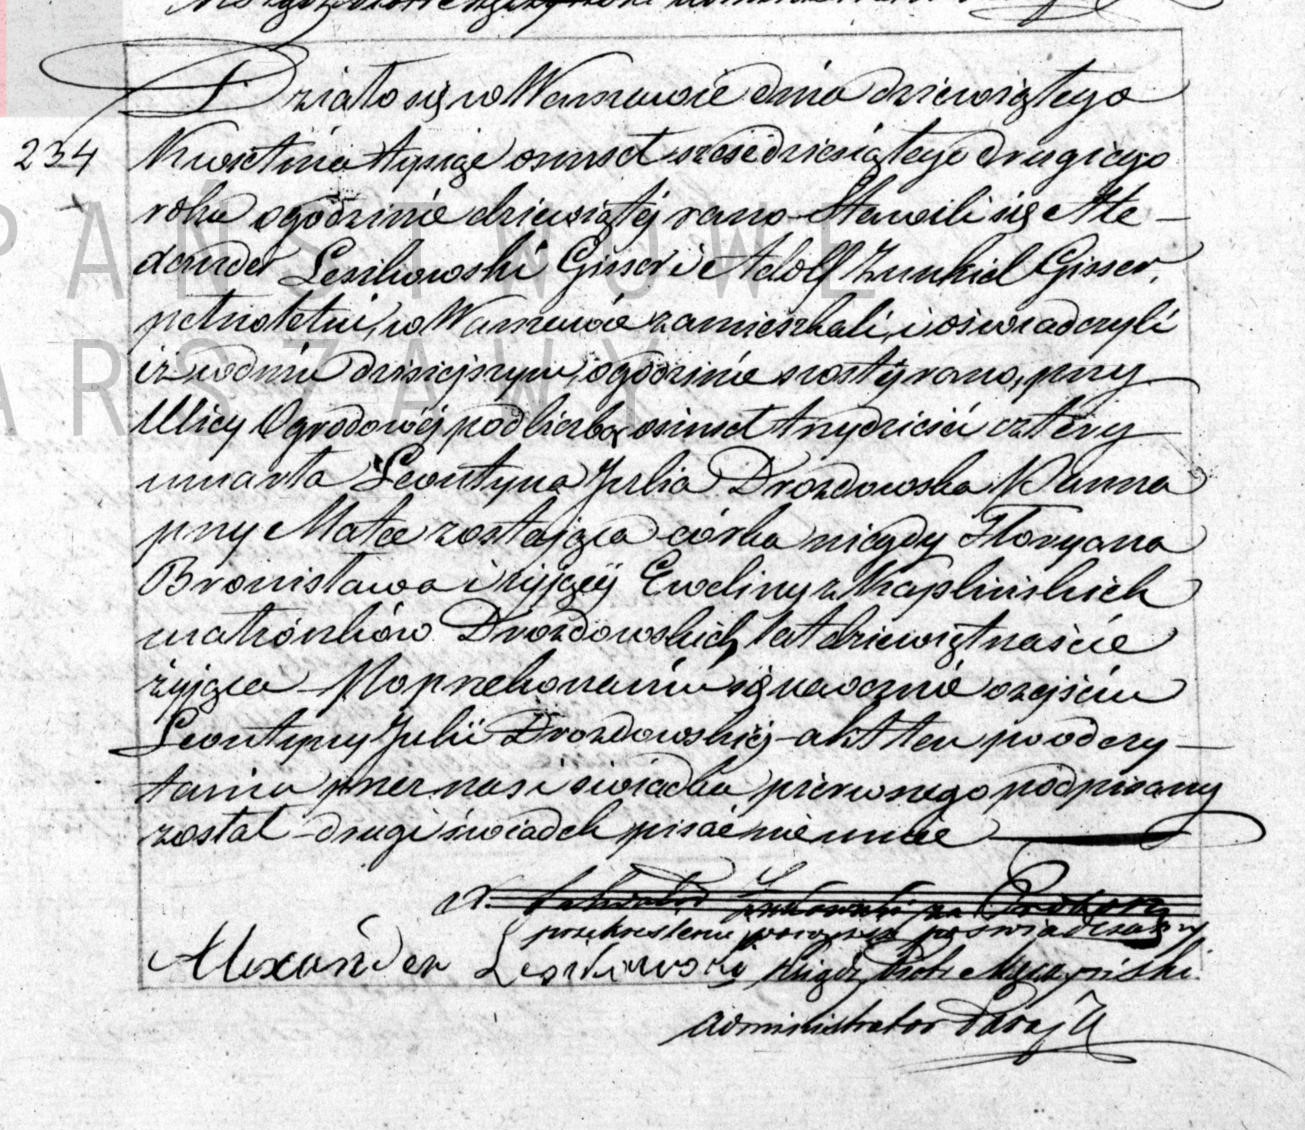 Działo się w Warszawie dnia dziewiątego
234
Kwietnia tysiąc osmset sześćdziesiątego drugiego
roku o godzinie dziewiątej rano – Stawili się Ale–
PAŃSTWOWE
xander Leszkowski Gisser i Adolf Zunkiel Gisser,
pełnoletni, w Warszawie zamieszkali, i oświadczyli
iż w dniu dzisiejszym o godzinie szóstéj rano, przy
WARSZAWY
Ulicy Ogrodowéj pod liczbą osmset trzydzieści cztery
umarła Leontyna Julia Drozdowska Panna
przy Matce zostająca córka niegdy Floryana
Bronisława i żyjącéj Eweliny z Kaplińskich
małżonków Drozdowskich, lat dziewiętnaście
żyjąca – Po przekonaniu się naocznie o zejściu
Leontyny Julii Drozdowskiéj – akt ten po odczy–
taniu przez nas i świadka pierwszego podpisany
został – drugi świadek pisać nie umie
X.
przekreślenie poświadczamy
Alexander Leszkowski Ksiądz Piotr
Administrator Paraji